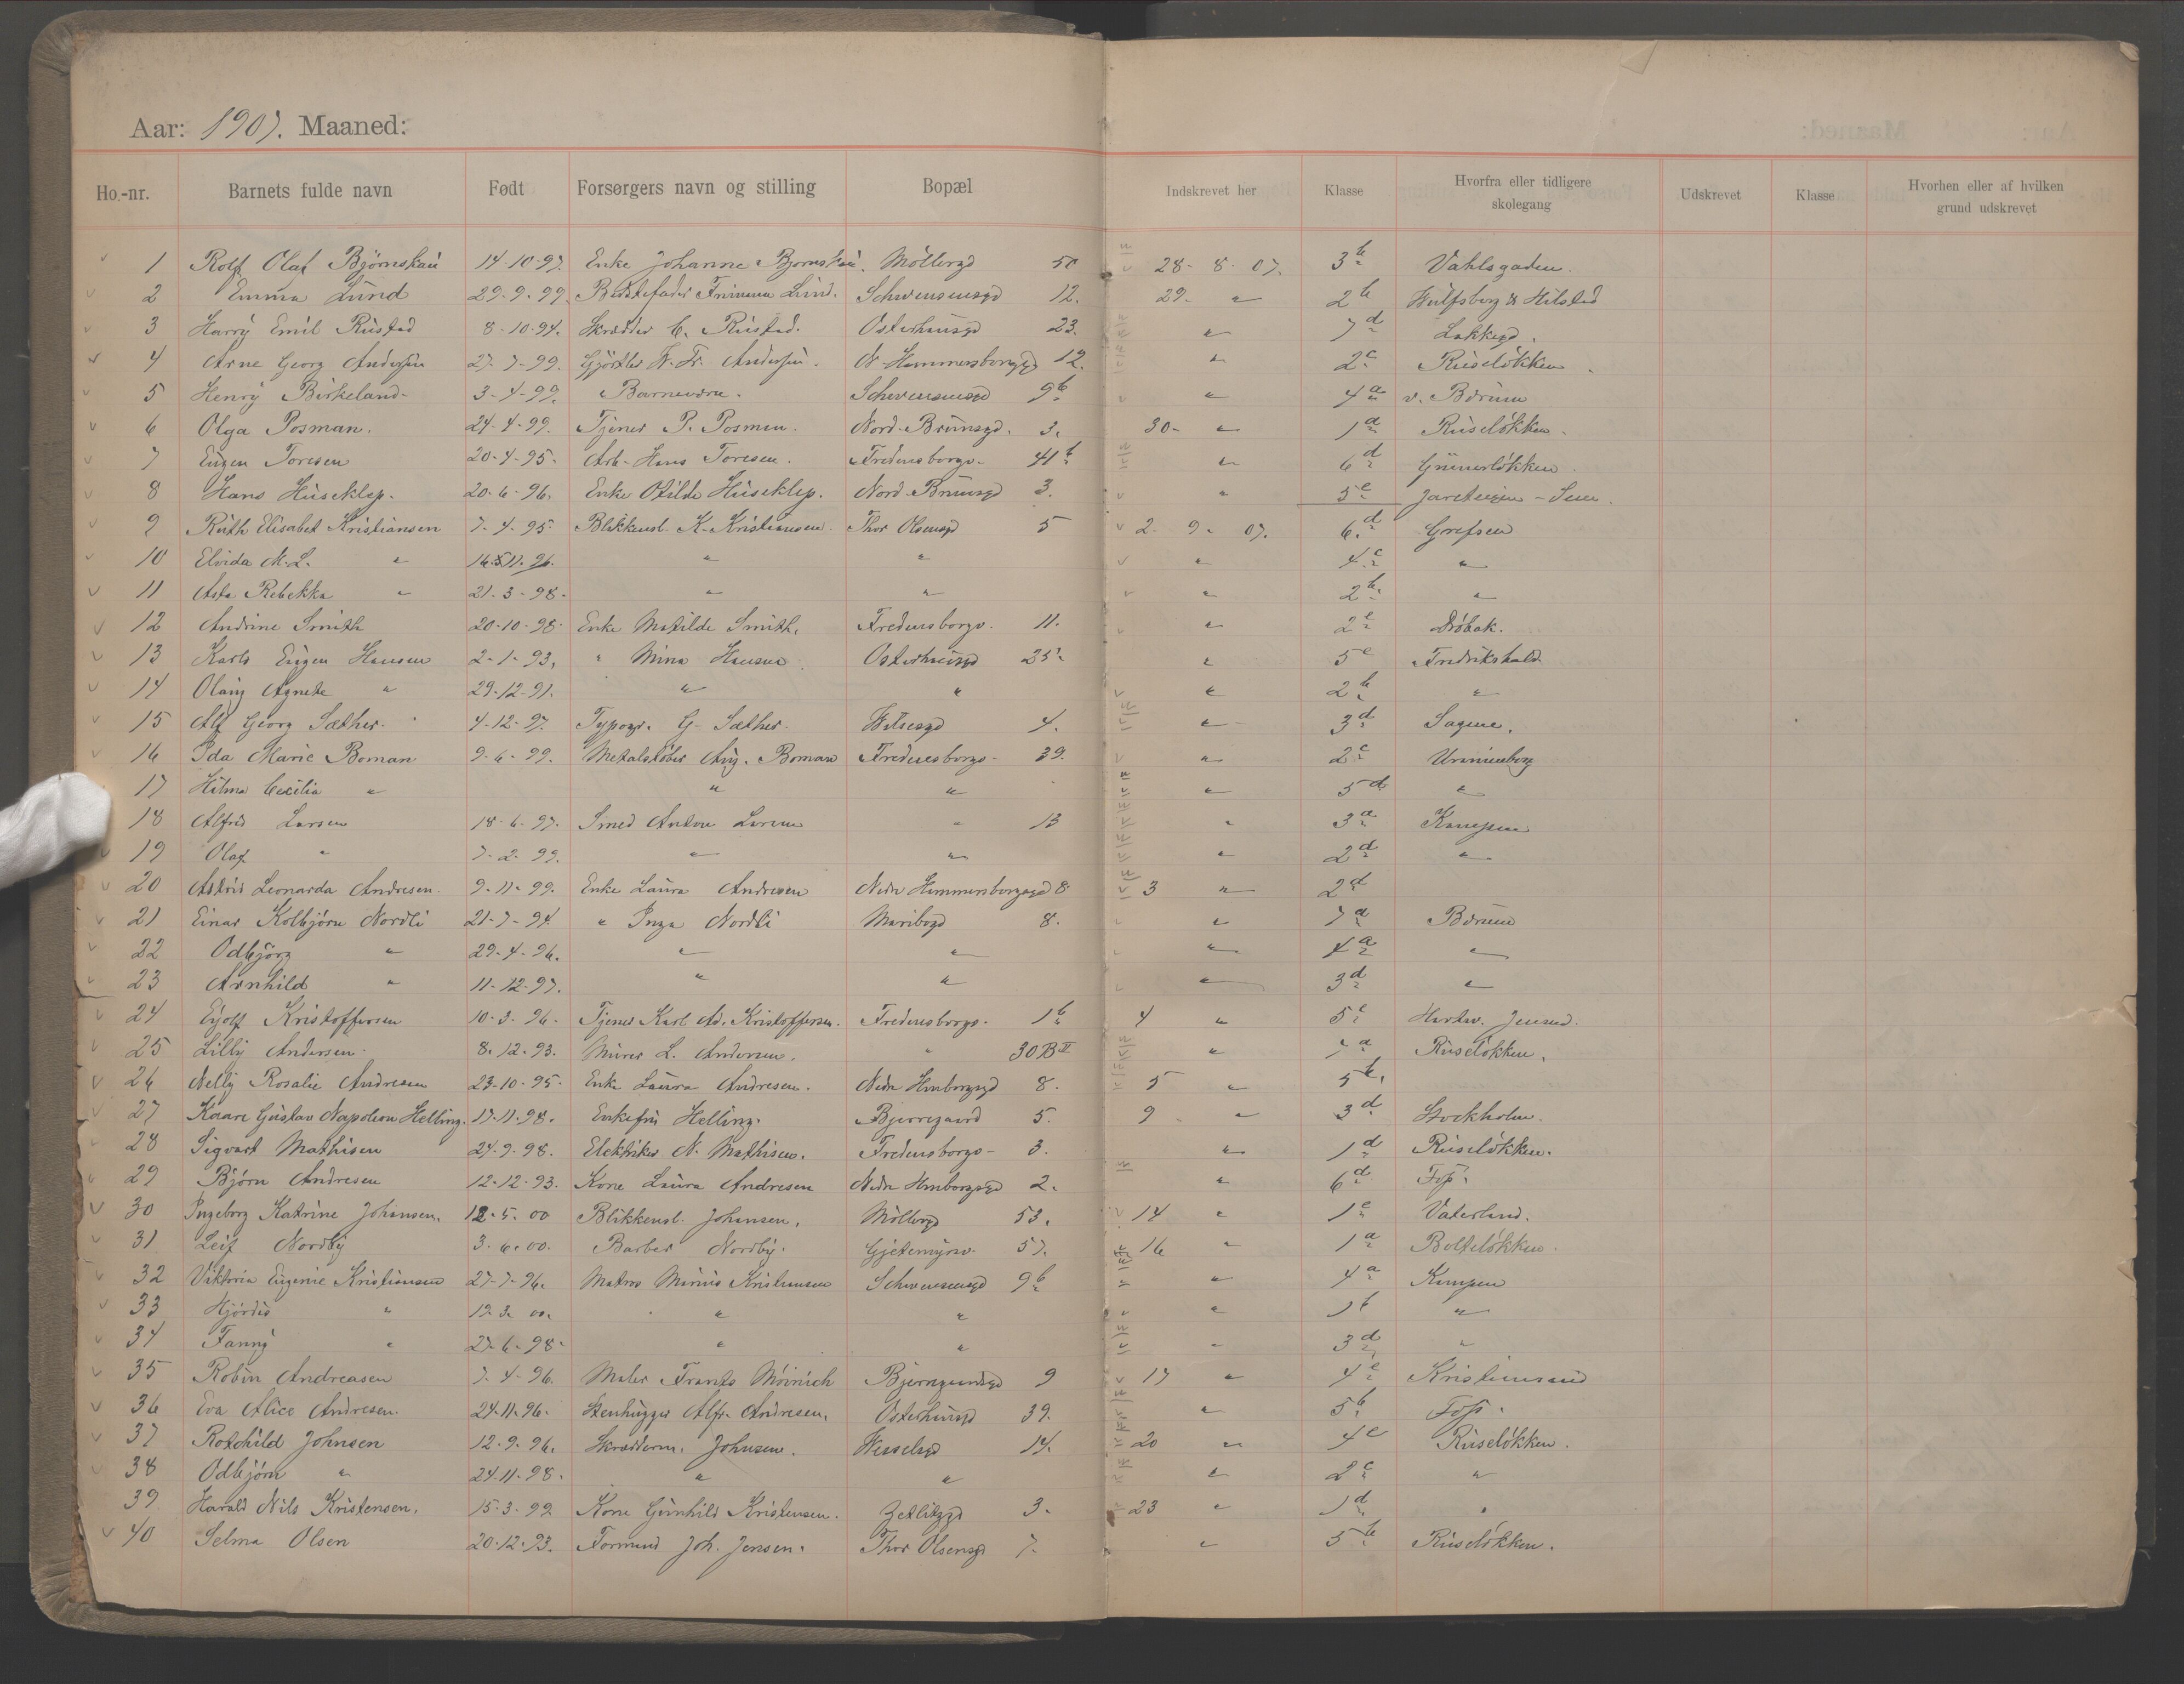 Aar: 1907. Maaned:
Ho.-nr. Barnets fulde navn Født Forsørgers navn og stilling Bopæl Indskrevet her Klasse Hvorfra eller tidligere skolegang Udskrevet Klasse Hvorhen eller af hvilken grund udskrevet
1 Rolf Olaf Björnskau 14-10-97. Enke Johanne Bjornskau. Möllergd 50 28-8-07. 3b Vahlsgaden.
2 Emma Lund 29-9-99. Bedstefader Lund. Schwensensgd 12. 29. " 2b
3 Harry Emil Rustad 8-10-94. Skrædder C. Rustad. Osterhausgd 23. " 7d Lakkegd.
4 Arne Georg Andersen 27-7-99. Gjörtler Fr. Andersen. N. Hammersborggd 12. " 2c Ruselökken.
5 Henry Birkeland 3-4-99. Barneværn. Schwensensgd 9b " 4a v. Bærum
6 Olga Posman. 24-4-99. Tjener P. Posman. Nord. Brunsgd. 3. 30- " 1a Ruselökken.
7 Eugen Toresen 20-4-95. Arb. Hans Toresen. Fredensborgv. 41b " 6d Grünerlökken.
8 Hans Huseklep. 20-6-96. Enke Otilde Huseklep. Nord. Brunsgd 3. " 5c - Sem.
9 Ruth Elisabet Kristiansen 7-4-95. Blikkensl. K. Kristiansen. Thor Olsensgd 5 2-9-07. 6d Grefsen
10 Elvida M. L. " " " " 4c "
11 Asta Rebekka " 21-3-98. " " " 2b "
12 Andrine Smith 20-10-98. Enke Matilde Smith. Fredensborgv. 11. " 2c Dröbak.
13 Karls Eugen Hansen 2-1-93. " Mina Hansen. Osterhausgd 25. " 5c Fredrikshald
14 Olaug Agnete " 29-12-91. " " " 2b "
15 Alf Georg Sæther. 4-12-97. Typogr. G. Sæther. Wilsesgd 4. " 3d Sagene.
16 Ida Marie Boman 9-6-99. Metalstöber Aug. Boman Fredensborgv. 39. " 2c Uranienborg
17 Hilma Cecilia " " " " 5d "
18 Alfred Larsen 18-6-97. Smed Anton Larsen " 13 " 3a Kampen
19 Olaf " 7-2-99. " " " 2d "
20 Astrid Leonarda Andresen. 9-11-99. Enke Laura Andresen Nedre Hammersborggd 8. 3 " 2d
21 Einar Kolbjörn Nordli 21-7-94. " Inga Nordli Maribogd 8. " 7a Bærum
22 Odbjörg " 29-4-96. " " " 4a "
23 Arnhild " 11-12-97. " " " 3d "
24 Eyolf Kristoffersen 10-3-96. Tjener Karl Ad. Kristoffersen. Fredensborgv. 1b 4 " 5c
25 Lilly Andersen. 8-12-93. Murer L. Andersen. " 30 B II " 7a Ruselökken.
26 Nelly Rosalie Andresen 23-10-95. Enke Laura Andresen. Nedre Hmborggd 8. 5 " 5b.
27 Kaare Gustav Napoleon Helling. 17-11-98. Enkefru Helling. 5. 9 " 3d Stockholm.
28 Sigvart Mathisen 24-9-98. Elektriker N. Mathisen. Fredensborgv. 3. " 1d Ruselökken.
29 Björn Andresen 12-12-93. Kone Laura Andresen Nedre Hmborggd 2. " 6d Foss.
30 Ingeborg Katrine Johansen. 12-5-00 Blikkensl. Johansen. Möllergd 53. 14 " 1c Vaterland.
31 Leif Nordby 3-6-00. Barber Nordby. Gjetemyrsv. 57. 16 " 1a Bolteløkken.
32 Viktoria Eugenie Kristiansen 27-7-96. Matros Kristiansen Schwensensgd 9b " 4a Kampen
33 Hjördis " 12-3-00. " " " 1b "
34 Fanny " 27-6-98. " " " 3d "
35 Robin Andreasen 7-4-96. Maler Frants 9 17 " 4c Kristiansund
36 Eva Alice Andresen. 24-11-96. Stenhugger Alfr. Andresen. Osterhausgd 39. " 5b. Foss.
37 Rotchild Johnsen 12-9-96. Skrædderm. Johnsen. Wesselsgd 14. 20 " 4c Ruselökken.
38 Odbjörn " 24-11-98. " " " 2c "
39 Harald Nils Kristensen. 15-3-99. Kone Gunhild Kristensen. Zetlitzgd 3. 23 " 1d "
40 Selma Olsen 20-12-93. Formand Joh. Jensen. Thor Olsensgd 7. " 5b Ruselökken.